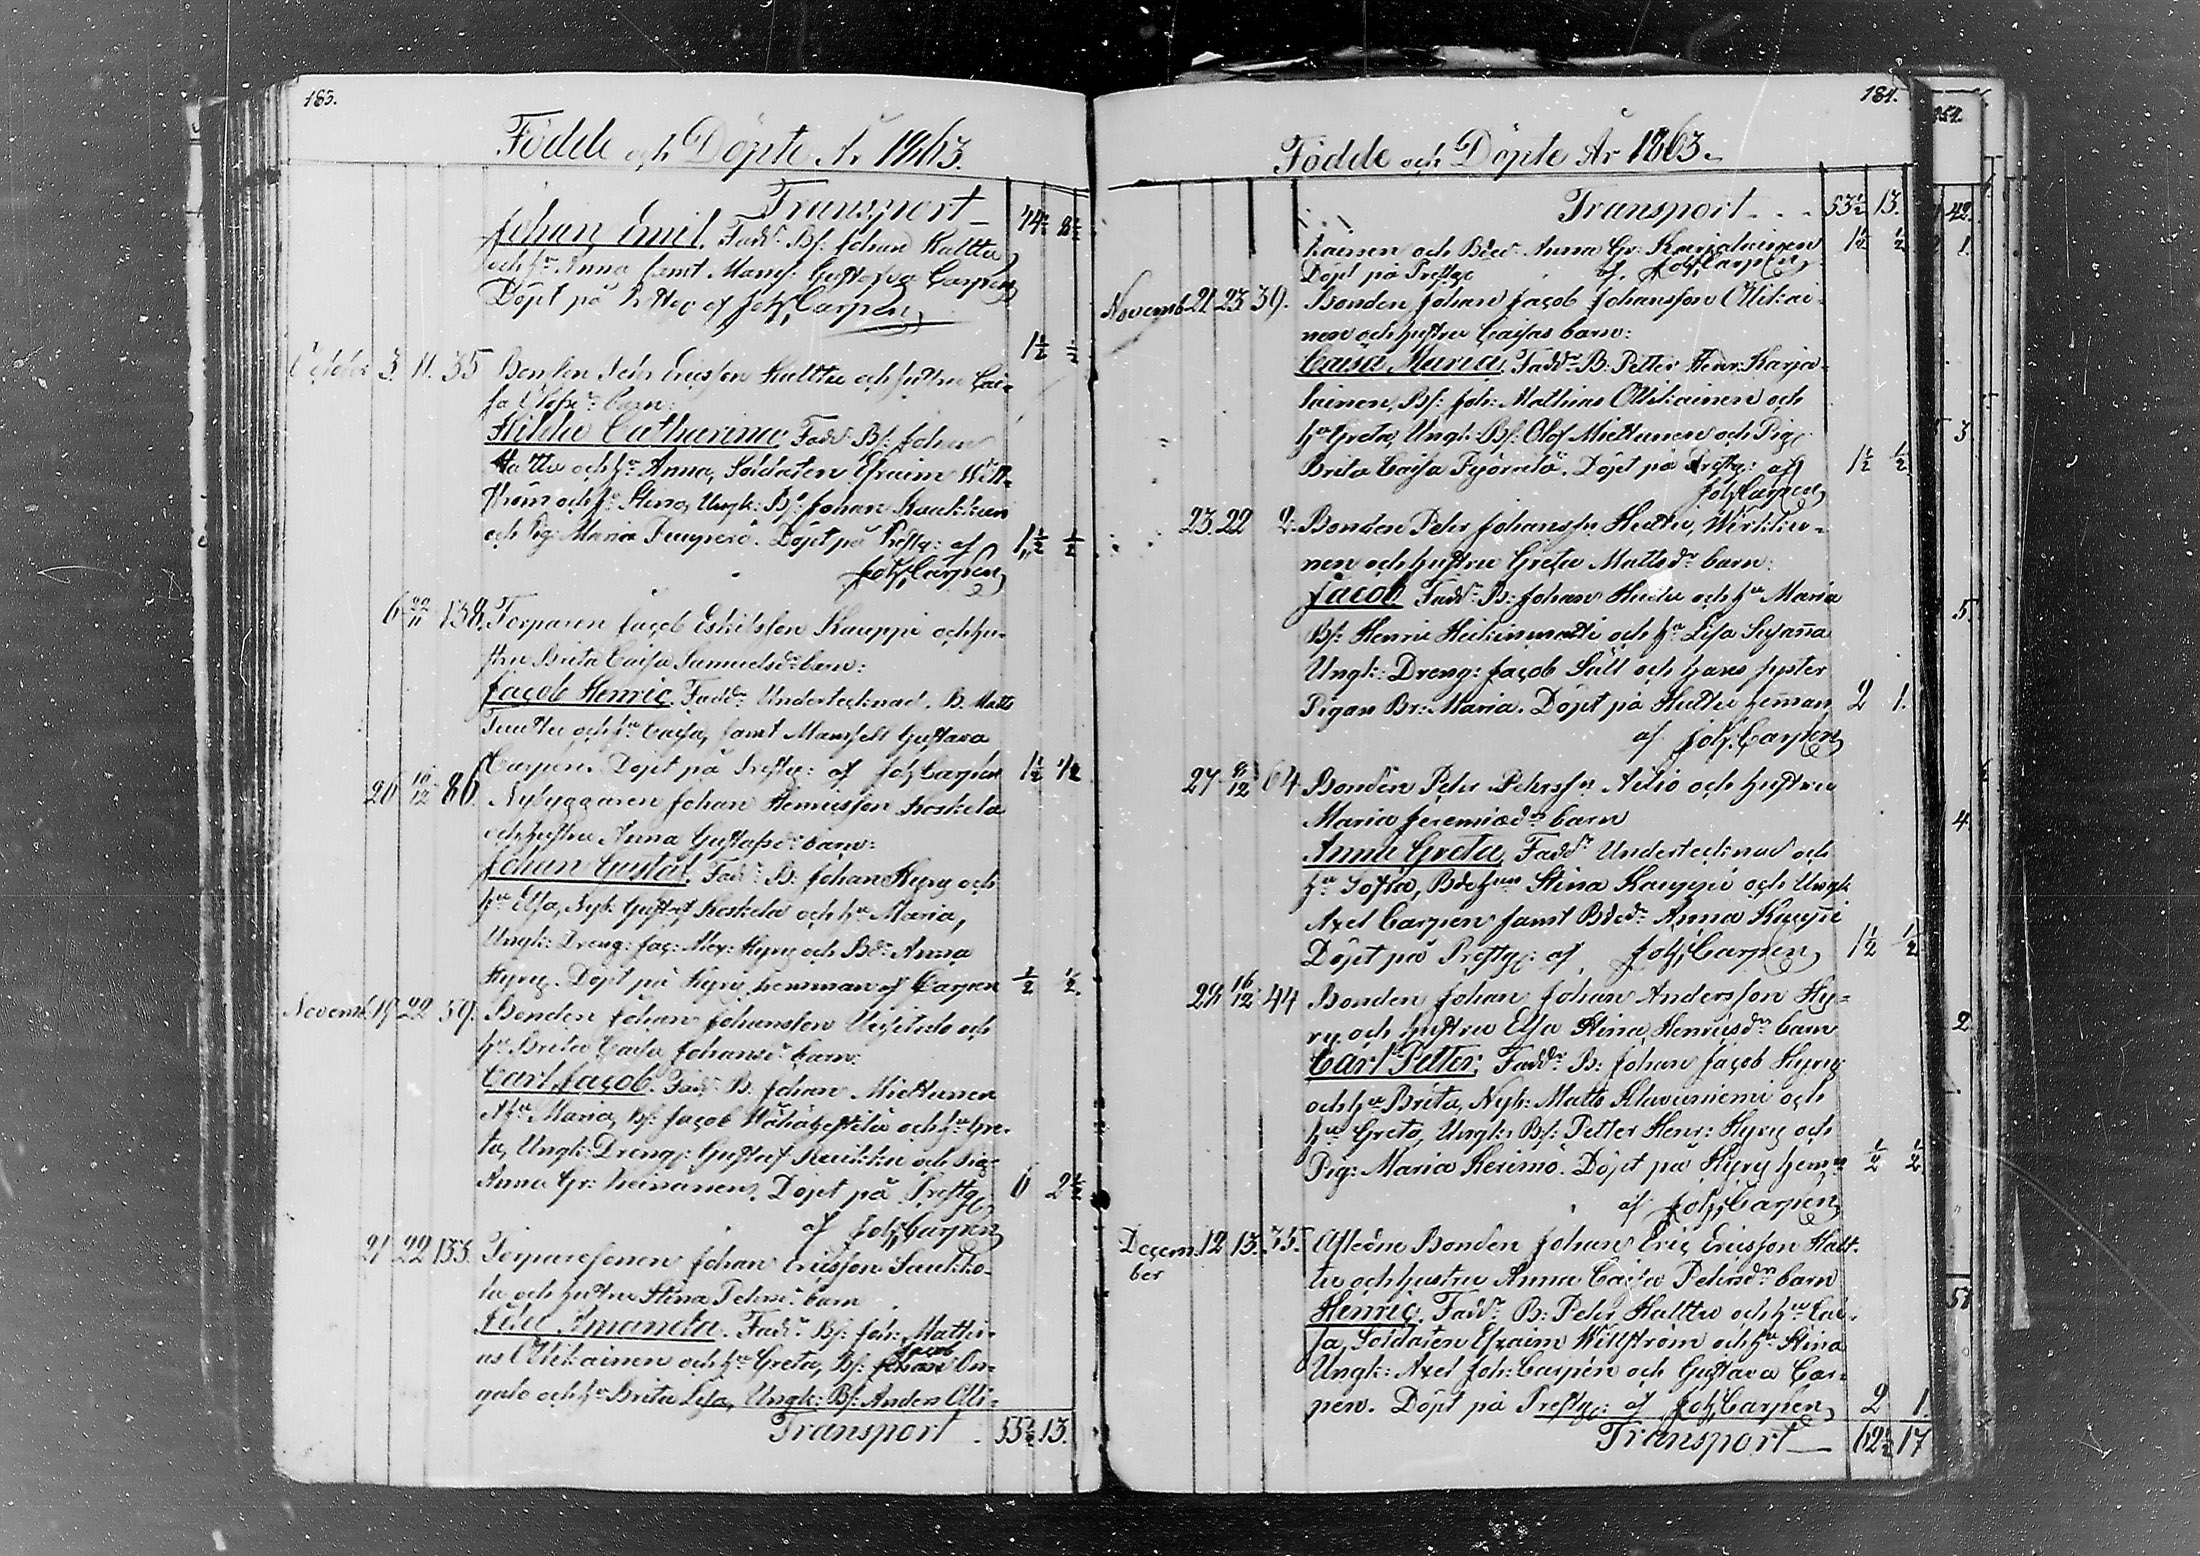 183.
Födde och Döpte År 1863.
Transport 44½ 8½
Johan Emil. Fadd: Bs: Johan Halttu
och hu Anna samt Mams: Gustafva Carpén
Döpt på Prstg af Joh, Carpén
October 3. 11. 35 Bonden Petter Ericsson Halttu och hustru Cai- 1½ ½
sa barn:
Hilda Catharina Fadd: Bs: Johan
Halttu och hu Anna, Soldaten Efraim Will-
ström och hu Stina, Ungk: Bs: Johan Kaikkonen
och Pig: Maria. Döpt på Prestg: af 1½ ½
Joh, Carpén
6 22/11 138. Torparen Jacob Eskilsson Kauppi och hu-
stru Brita Caisa Samuelsdr barn:
Jacob Henric. Fadd: Undertecknad. B. Matts
och hu Caisa, samt Mamsell Gustava
Carpén. Döpt på Prestg: af Joh Carpén 1½ 1/2
26 16/12 86. Nybyggaren Johan Henricsson Koskela
och hustru Anna Gustafsdr barn:
Johan Gustaf. Fadd: B: Johan Hyry och
hu Elsa, Nyb. Gustaf Koskela och hu Maria,
Ungk: Dreng: Jac: Alex: Hyry och Bdr Anna
Hyry. Döpt på Hyry hemman af Carpén ½ ½.
Novemb. 19 22 59. Bonden Johan Johansson och
hu Brita Caisa Johansdr barn:
Carl Jacob. Fadd: B. Johan Miettunen
o hu Maria, Bs: Jacob och hu Gre-
ta, Ungk: Dreng: Gustaf och Pig:
Anna Gr: Heinanen. Döpt på Prestg 6 2½
af Joh, Carpén
21 22 133. Torparesonen Johan Ericsson Saukko-
la och hustru Stina Petersdr barn
Fadd: Bs: Joh: Mathi-
as Ollikainen och hu Greta, Bs: Jacob On-
galo och hu Brita Lisa, Ungk: Bs: Anders Olli-
Transport 53½ 13.
184.
Födde och Döpte År 1863.
Transport 53½ 13.
kainen och Bdr Anna Gr: Karjalainen 1½ ½
Döpt på Prestg af Joh, Carpén
Novemb 21 23 39. Bonden Johan Jacob Johansson Ollikai-
nen och hustru Caisas barn:
Caisa Maria, Fadd: B: Petter Henr: Karja-
lainen, Bs: Joh: Mathias Ollikainen och
hu Greta, Ungk: Bs: Olof Miettunen och Pig:
Brita Caisa Pyörretä. Döpt på Prestg: af 1½ ½
Joh, Carpén
23. 29 2. Bonden Pehr Johansson Huttu, Wirkku-
nen och hustru Greta Mattsdr barn:
Jacob. Fadd: B: Johan Huttu och hu Maria
Bs: Henric och hu Lisa Susanna
Ungk: Dreng: Jacob Säll och hans syster
Pigan Br: Maria. Döpt på Huttu hemman 2 1.
af Joh. Carpén
27 8/12 64 Bonden Pehr Pehrsson Aitio och hustru
Maria Jeremiædr barn
Anna Greta, Fadd: Undertecknad och
hu Sofia, Stina Kauppi och Ungk
Axel Carpén samt Bdr Anna Kauppi
Döpt på Prestg: af Joh, Carpén 1½ ½
28 16/12 44 Bonden Johan Johan Andersson Hy-
ry och hustru Elsa Stina Henricsdr barn
Carl Petter; Fadd: B: Johan Jacob Hyry
och hu Brita, Nyb: Matts Klaviniemi och
hu Greta, Ungk: Bs: Petter Henr: Hyry och
Pig: Maria Kerimö. Döpt på Hyry hemn ½ ½
af Joh, Carpén
Decem- 12 13. 35. Afledne Bonden Johan Eric Ericsson Halt-
ber
tu och hustru Anna Caisa Pehrsdr barn
Henric. Fadd: B: Pehr Halttu och hu Cai-
sa, Soldaten Efraim Willström och hu Stina
Ungk: Axel Joh: Carpén och Gustava Car-
pén. Döpt på Prestg: af Joh, Carpén 2 1.
Transport 62½ 17